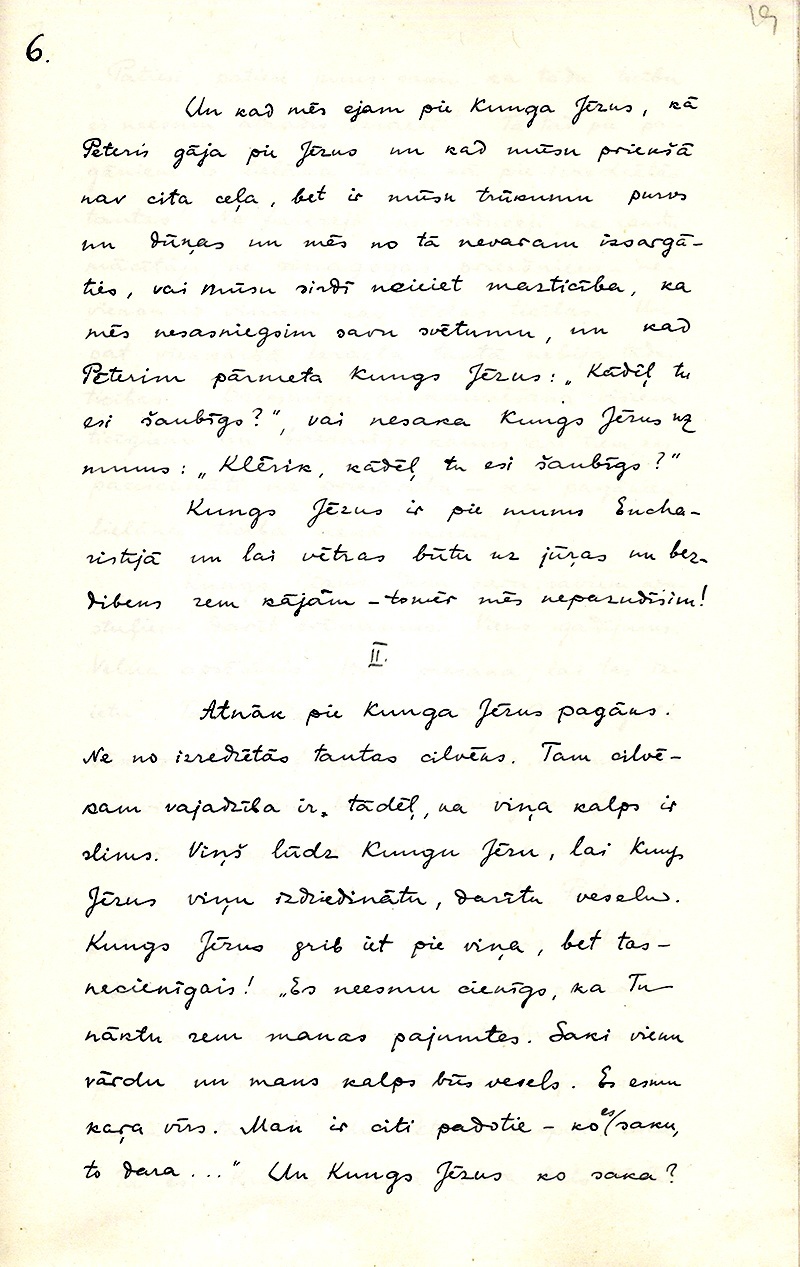 6.
19
Un kad mēs ejam pie Kunga Jēzus, kā
Pēteris gāja pie Jēzus un kad mūsu priekšā
nav cita ceļa, bet ir mūsu trūkumu purvs
un dūņas un mēs no tā nevaram izsargā-
ties, vai mūsu sirdī neieiet mazticība, ka
mēs nesasniegsim savu svētumu, un kad
Pēterim pārmeta Kungs Jēzus: „Kādēļ tu
esi šaubīgs?", vai nesaka Kungs Jēzus uz
mums: „Klērik, kādēļ tu esi šaubīgs?"
Kungs Jēzus ir pie mums Eucha-
ristijā un lai vētras būtu uz jūŗas un bez-
dibens zem kājām – tomēr mēs nepazudīsim!
II.
Atnāk pie Kunga Jēzus pagāns.
Ne no izredzētās tautas cilvēks. Tam cilvē-
kam vajadzība ir, tādēļ, ka viņa kalps ir
slims. Viņš lūdz Kungu Jēzu, lai Kungs
Jēzus viņu izdziedinātu, darītu veselu.
Kungs Jēzus grib iet pie viņa, bet tas –
necienīgais! „Es neesmu cienīgs, ka Tu
nāktu zem manas pajumtes. Saki vienu
vārdu un mans kalps būs vesels. Es esmu
kaŗa vīrs. Man ir citi padotie – ko es saku,
to dara ..." Un Kungs Jēzus ko saka?